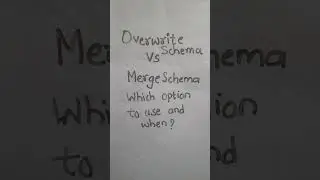 Overwrite
Schema
Vs
MergeSchema
Which option
to use and
when?